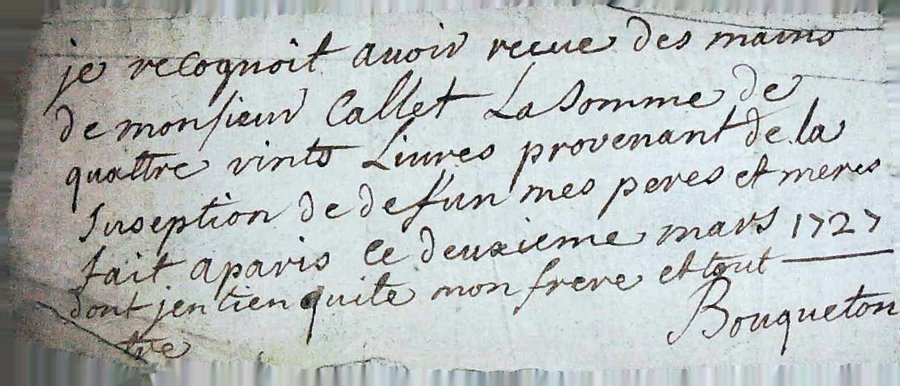 je recognoit avoir recue des mains
de monsieur Callet La Somme de
quattre vints Livres provenant de la
suseption de defun mes peres et meres
fait a paris ce deuxieme mars 1727
dont jen tien quite mon frere et tout
tre
Bouqueton